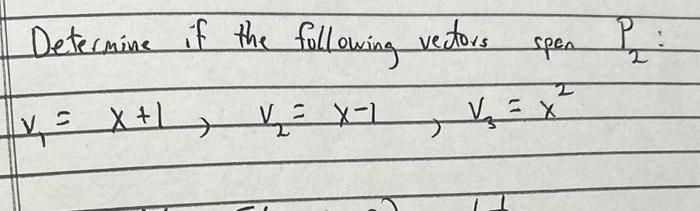 Determine if the following vectors span P₂:
v₁ = x+1, v₂ = x-1, v₃ = x²